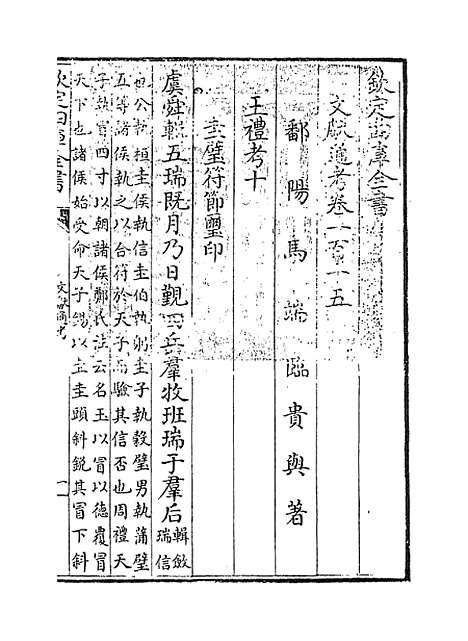 欽定四庫全書
文獻通考卷一百十五
鄱陽馬端臨貴與著
王禮考十
圭璧符節璽印
虞舜輯五瑞既月乃日覲四岳羣牧班瑞于羣后
輯斂
瑞信
也公執桓圭侯執信圭伯執躬圭子執穀璧男執蒲璧
五等諸侯執之以合符於天子而驗其信否也周禮天
子執冒四寸以朝諸侯鄭氏註云名玉以冒以德覆冒
天下也諸侯始受命天子錫以圭圭頭斜銳其冒下斜
欽定四庫全書
文獻通考
一